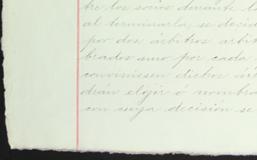 tre los socios durante l
al terminarla, se decid
por dos árbitros arbit
brados uno por cada
conviniesen dichos árb
drán elijir ó nombra
con cuya decisión se